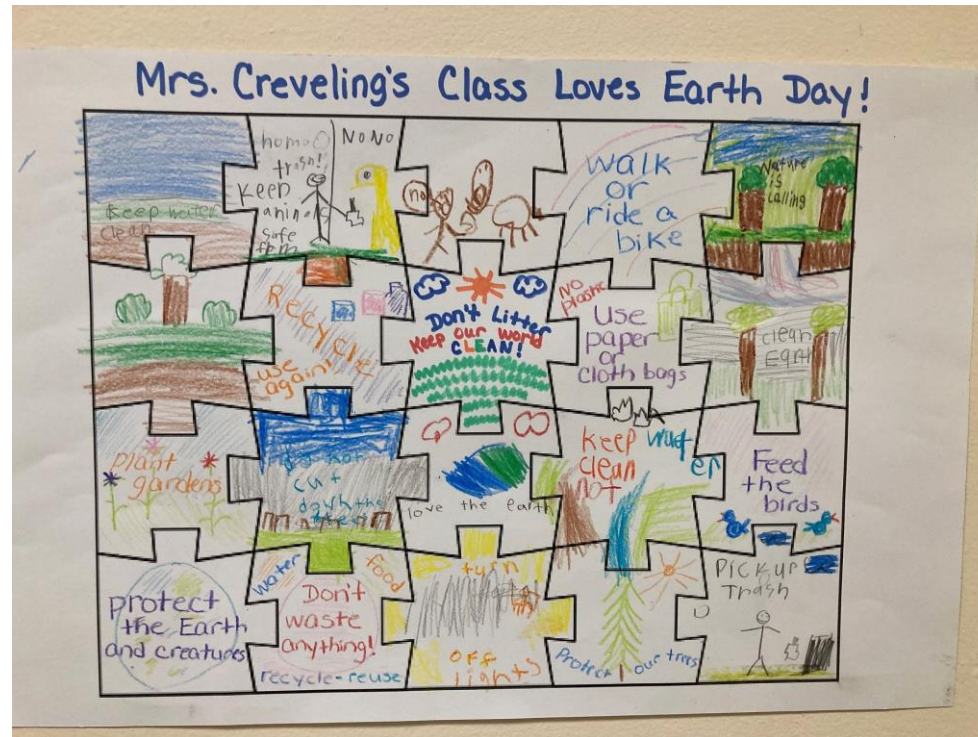 Mrs. Creveling's Class Loves Earth Day!
Keep water
clean
homo
trash!
Keep
animals
safe
fem
NO NO
no
walk
or
ride a
bike
Nature
is
calling
Recycle
use
again!
Don't Litter
Keep our world
CLEAN!
NO
plastic
Use
paper
or
cloth bags
clean
Earth
plant
gardens
do not
cut
down the
trees
love the earth
keep water
clean
not
Feed
the
birds
protect
the Earth
and creatures
water
food
Don't
waste
anything!
recycle-reuse
turn
off
lights
Protect our trees
PICK UP
Trash